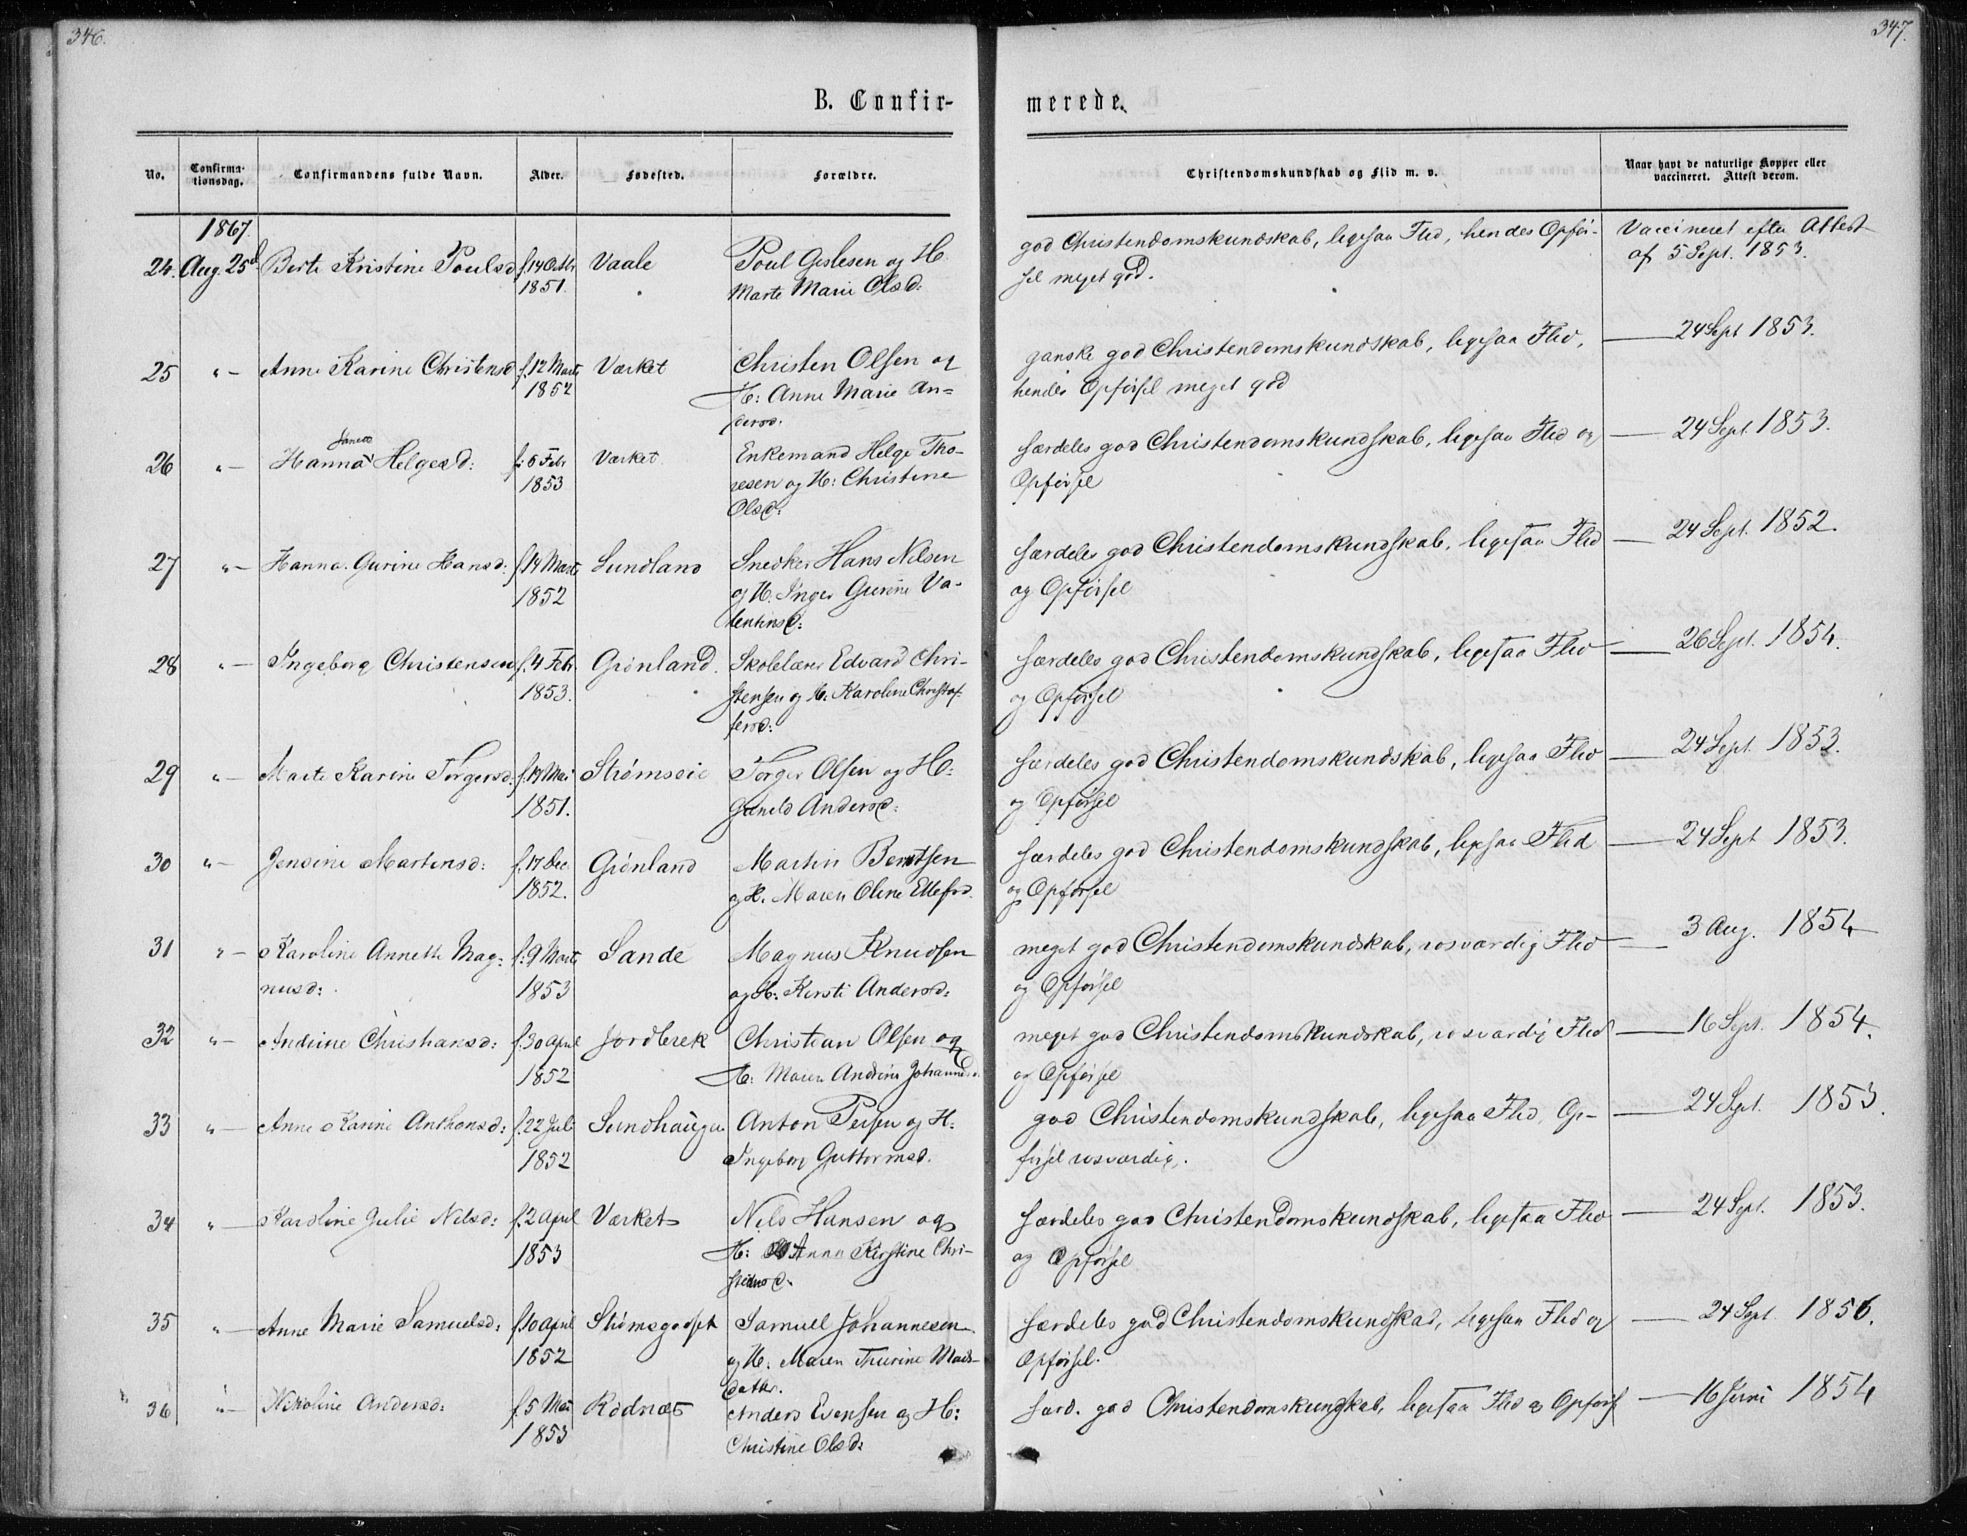 346.
347.
B. Confir-
merede.
No.
Confirma-
tionsdag.
Confirmandens fulde Navn.
Alder.
Fødested.
Forældre.
Christendomskundskab og Flid m. v.
Naar havt de naturlige Kopper eller
vaccineret. Attest derom.
1867.
24. Aug. 25d Berte Kristine Poulsd f. 14 Octbr Vaale Poul Gislesen og H god Christendomskundskab, ligesaa Flid, hendes Opför- Vaccineret efter Attest
1851. Marte Marie Olsd: sel meget god. af 5 Sept. 1853.
25 "- Anne Karine Christensd f. 12 Marts Værket Christen Olsen og ganske god Christendomskundskab, ligesaa Flid, — 24 Sept 1853.
1852 H: Anne Marie An- hendes Opförsel meget god
dersd:
26 "- Hanna Helgesd: f: 6 Febr Værket. Enkemand Helge Tho- særdeles god Christendomskundskab, ligesaa Flid og — 24 Sept. 1853.
1853 resen og H: Christine Opförsel
Olsd:
27 "- Hanna Gurine Hansd: f. 14 Marts Sundland Snedker Hans Nilsen særdeles god Christendomskundskab, ligesaa Flid — 24 Sept. 1852.
1852 og H. Inger Gurine Va- og Opförsel
lentinsd:
28 "- Ingeborg Christensen f. 4 Febr Grönland. Skolelærer Edvard Chri- særdeles god Christendomskundskab, ligesaa Flid — 26 Sept. 1854.
1853. stensen og H. Karoline Christof- og Opförsel
fersd:
29 "- Marte Karine Torgersd: f. 19 Mai Strømsøie Torger Olsen og H: særdeles god Christendomskundskab, ligesaa Flid — 24 Sept. 1853.
1851. Gunild Andersd: og Opförsel
30 "- Jensine Martinsd: f. 17 Dec Grönland Martin Berntsen særdeles god Christendomskundskab, ligesaa Flid — 24 Sept 1853.
1852. og H. Maren Oline Ellefsd. og Opförsel
31 "- Karoline Annette Mag- f: 9 Marts Sande Magnus Knudsen meget god Christendomskundskab, rosværdig Flid — 3 Aug. 1854
nusd: 1853 og H: Kirsti Andersd: og Opförsel
32 "- Andrine Christiansd: f. 30 April Jordbrek Christian Olsen og meget god Christendomskundskab, rosværdig Flid — 16 Sept. 1854.
1852 H: Maren Andrine Johannesd. og Opförsel
33 "- Anne Karine Anthonsd: f. 22 Juli Sundhaugen Anton Persen og H: god Christendomskundskab, ligesaa Flid, Op- — 24 Sept. 1853.
1852 Ingeborg Guttormsd. försel rosværdig.
34 "- Karoline Julie Nilsd: f. 2 April Værket Nils Hansen og særdeles god Christendomskundskab, ligesaa Flid — 24 Sept. 1853.
1853 H: Anna Kirstine Chri- og Opförsel
35 "- Anne Marie Samuelsd: f. 10 April Strömsgodset Samuel Johannesen særdeles god Christendomskundskab, ligesaa Flid og — 24 Sept 1856.
1852 og H. Maren Thurine Mads- Opförsel.
datter.
36 "- Nikoline Andersd: f. 5 Mai Rødnæs Anders Evensen og H: særd. god Christendomskundskab, ligesaa Flid og Opförs — 16 Juni 1854
1853 Christine Olsd: